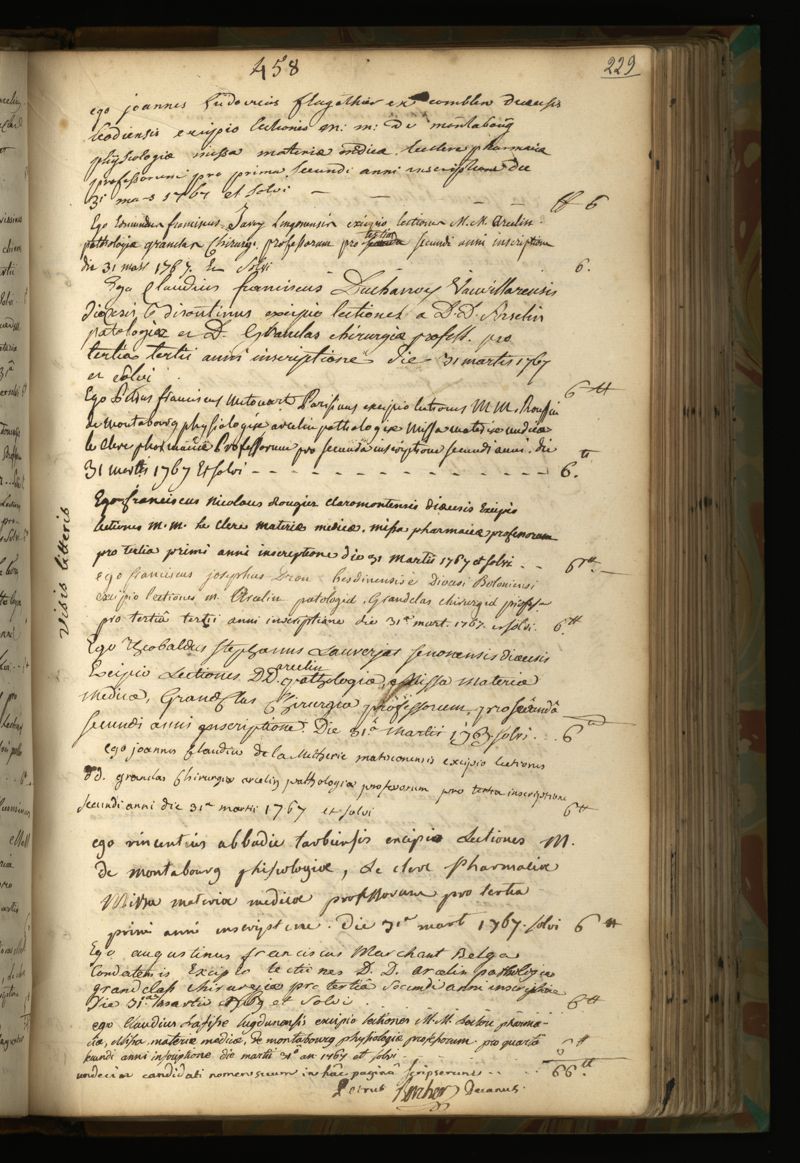 458
229
ego joannes Ludovicus flagothier ex comblen diœcesis
leodiensis excipio lectiones m: m: De montabourg
physiologiæ missa materiæ medicæ. leclerc pharmaciæ
professorum pro prima secundi anni inscriptione die
3i mars 1767 et solvi — — — — ₶ 6
Ego Edmundus franciscus Lingonensis excipio lectiones M. M. arcelin
pathologiæ grandclas Chirurgi. professorum pro tertia secundi anni inscriptione
die 31 mart 1767. Et solvi 6.
Ego Claudius franciscus Duchanoy Vauvillarensis
diœcesis bisontinus excipio lectiones a D.D. Arcelin
patologiæ et D. Grandclas chirurgiæ profess. pro
tertia tertii anni inscriptione die 31 martis 1767
et solvi 6 ₶
Ego franciscus mitouart Parisinus excipio lectiones M M. Roussin
de montabourg physiologiæ arcelin pathologiæ missa materiæ medicæ
le Clerc pharmaciæ Professorum pro secunda inscriptione secundi anni. die
31 martis 1767 Et solvi - - - - - - - - - - - - 6.₶
Ego franciscus Nicolaus Rougier claromontensis diœcesis Excipio
lectiones m. m. Le Clerc materiæ medicæ. missa pharmaciæ professorum
pro tertia primi anni inscriptione die 31 martii 1767 et solvi - - 6₶
Visis litteris
ego franciscus josephus Drou hesdinensis e Diocesi Boloniensi
excipio lectiones m. Arcelin patologiæ. Grandclas chirurgiæ profess
pro tertiâ tertii anni inscriptione die 31ª mart. 1767. et solvi. 6.₶
Ego Theobaldus Stephanus Lauverjat senonensis diœcesis
Excipio Lectiones D.D. arcelin pathologiæ, Missa Materiæ
Medicæ, Grandclas Chirurgiæ professorum, pro secundâ
secundi anni inscriptione. Die 31â Martii 1767 solvi. . . 6₶
ego joannes Claudius de la Metherie matisconensis excipio lectiones
d d. granclas Chirurgiæ arcelin pathologiæ professorum pro tertia inscriptione
secundi anni die 31ª martii 1767 et solvi 6₶
ego vincentius abbadie tarbiensis excipio Lectiones M.
de montabourg phisiologiæ, Le clerc Pharmaciæ
Missa materiæ medicæ professorum pro tertia
primi anni inscriptione. Die 31ª mart 1767. solvi 6 ₶
Ego augustinus franciscus Marchant Belga
Condatensis Excipio lectiones D. D. arcelin pathologiæ
grandclass chirurgiæ pro tertia secundi anni inscriptione
die 31ª martii 1767 et solvi 6₶
ego Claudius Lafisse Lugdunensis excipio lectiones M. M. pharma-
ciæ, Missa materiæ medicæ, de montabourg physiologiæ professorum pro quarta
secundi anni inscriptione die martii 31º an 1767 et solvi 6₶
undecim candidati nomen suum in hâc paginâ scripserunt . . . 66₶
Petrus Bercher Decanus.